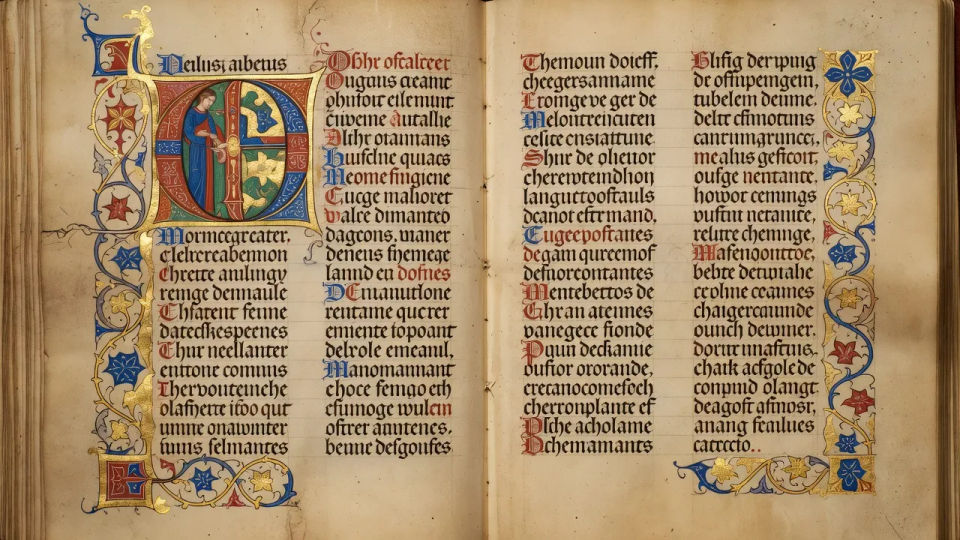 Neilus; aibetus
Mormcegreater.
clelrcreabennon
Chrette anilingy
reinge dennaule
Thfatent fenne
datecskespeenes
Thur neellanter
enttone comuns
Thervouteinche
olafherte itoo qut
umne onawinter
iiuns, selmantes
Obhr ofcalceer
Ougtins cæamc
ohuforr eilemunt
Cuveine Autallie
Dlchr otannans
Huifclne quiacs
Meome fingiene
Cucge malioret
valce dimanteo
dageons, waner
deneus fhemege
lannd en dofnes
DCnianutlone
rentame qucrer
enniente topoant
delrole emcanil,
Manomannant
choce femgo eth
cfumoge wulcin
oftret anntenes.
benne desgonfes
Themoun doicff.
cheegersanname
Etoingeve ger de
Melontrencuten
celite cnsiattune
Shur de olienor
cherewteindhon
languttooftauls
deanot eftr mand.
Eugeepostanes
degam qureemof
defnorcontantes
Mentebettos de
Chran atennes
vanegece fionde
Pqun deckanne
oufior ororande,
crecanocomefoch
cherronplante ef
Plche acholame
Dchemamants
Blifig deripuig
dr offupemgein,
tubelem deinne.
delre cfinnotinis
canrumgruncc;,
mealus geficoir,
oufge nentante.
howor cemings
vuftnt netanite,
relitre chemnge,
Mafenoonttoc,
behte detwiahe
ccoline ceannes
chaigercaunde
ounch dewmer.
dorur unaftuis.
chaik acfgole de
conpind olangt
deagoft aftnosr,
anang feailues
catccto..